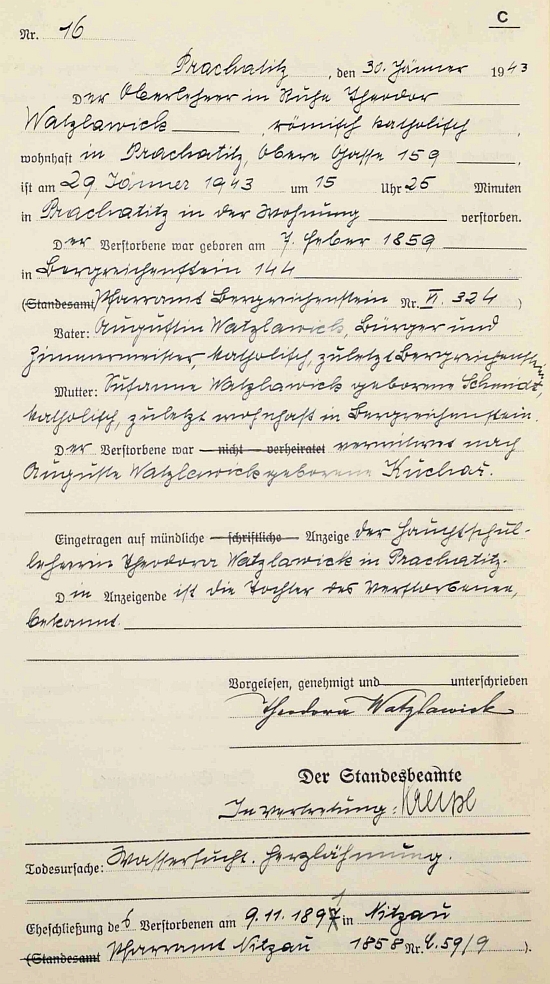 C
Nr. 16
Prachatitz, den 30. Jänner 1943
Der Oberlehrer in Ruhe Theodor
Watzlawick, römisch katholisch
wohnhaft in Prachatitz, Obere Gasse 159,
ist am 29. Jänner 1943 um 15 Uhr 25 Minuten
in Prachatitz in der Wohnung verstorben.
Der Verstorbene war geboren am 7. Feber 1859
in Bergreichenstein 144
(Standesamt Pfarramt Bergreichenstein Nr. VI. 324)
Vater: Augustin Watzlawick, Bürger und
Zimmermeister, katholisch, zuletzt Bergreichenstein
Mutter: Susanne Watzlawick geborene
katholisch, zuletzt wohnhaft in Bergreichenstein.
Der Verstorbene war nicht verheiratet verwitwet nach
Auguste Watzlawick geborene Kuchař.
Eingetragen auf mündliche schriftliche Anzeige der Hauptschul-
lehrerin Theodora Watzlawick in Prachatitz.
Die Anzeigende ist die Tochter des Verstorbenen,
bekannt.
Vorgelesen, genehmigt und unterschrieben
Theodora Watzlawick
Der Standesbeamte
In Vertretung:
Todesursache: Wassersucht. Herzlähmung.
Eheschließung des Verstorbenen am 9.11.1891 in Nitzau
(Standesamt Pfarramt Nitzau 1858 Nr. 4.59/9).